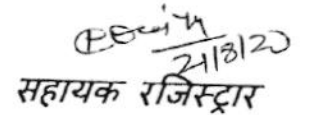 21/8/20
सहायक रजिस्ट्रार